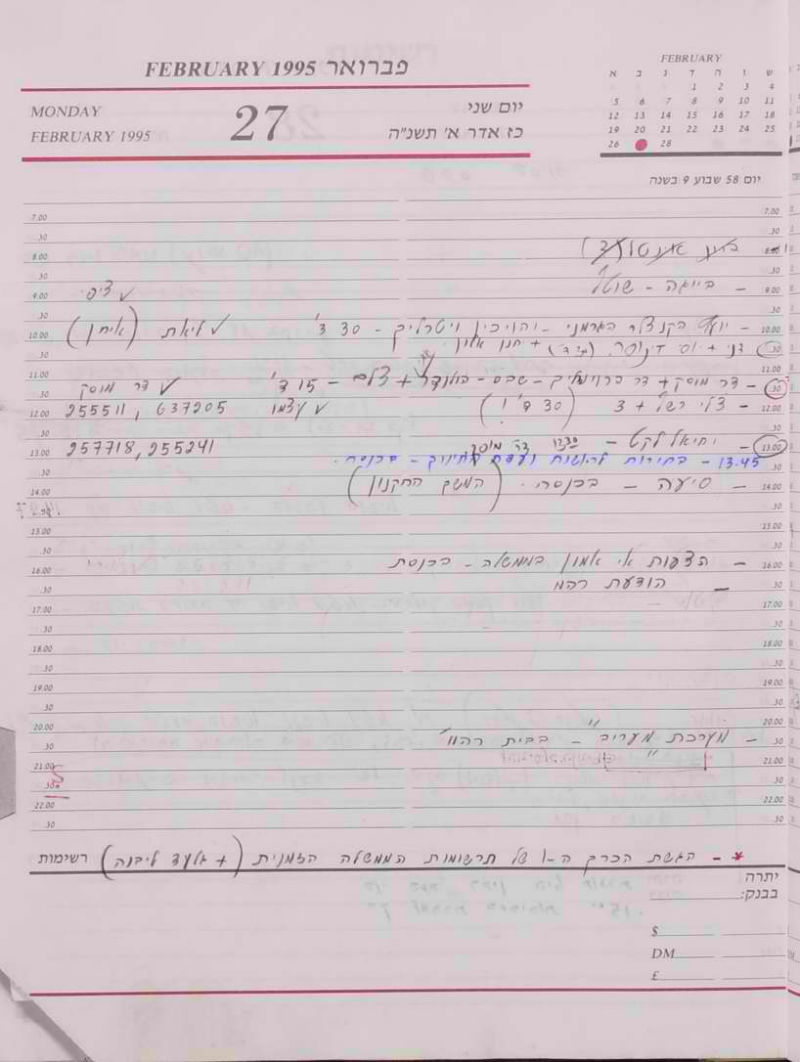 FEBRUARY 1995 פברואר
MONDAY
FEBRUARY 1995
27
יום שני
כז אדר א' תשנ"ה
FEBRUARY
א ב ג ד ה ו ש
1 2 3 4
5 6 7 8 9 10 11
12 13 14 15 16 17 18
19 20 21 22 23 24 25
26 28
יום 58 שבוע 9 בשנה
7.00
.30
8.00
.30
9.00 - בייגה - שוטף ✓ ציפי
.30
10.00 - יועץ הקנצלר הגרמני - יואכין ביטרליך - 30 ד' ✓ ליאת (איתן)
.30 דני + יוסי + חנן אלון.
11.00
.30 - דר מוסק + דר - שבס - הולנדר + צלם - 15 ד' ✓ דר מוסק
12.00 - צלי רשף + 3 (30 ד'!) ✓ עצמו 255511, 637205
.30
13.00 - יחיאל לקט - 12.30 דר מוסק 257718, 255241
13.45 - בחירות לראשות ועדת החינוך - בכנסת.
14.00 - סיעה - בכנסת. (המשך התקנון)
.30
15.00
.30
16.00 - הצעות אי אמון בממשלה - בכנסת
.30 - הודעת רהמ
17.00
.30
18.00
.30
19.00
.30
20.00
.30 - מערכת "מעריב" - בבית רהמ
21.00
.30
22.00
.30
רשימות * - הגשת הכרך ה-1 של תרשומות הממשלה הזמנית (+ גלעד ליבנה)
יתרה
בבנק:
$
DM
£